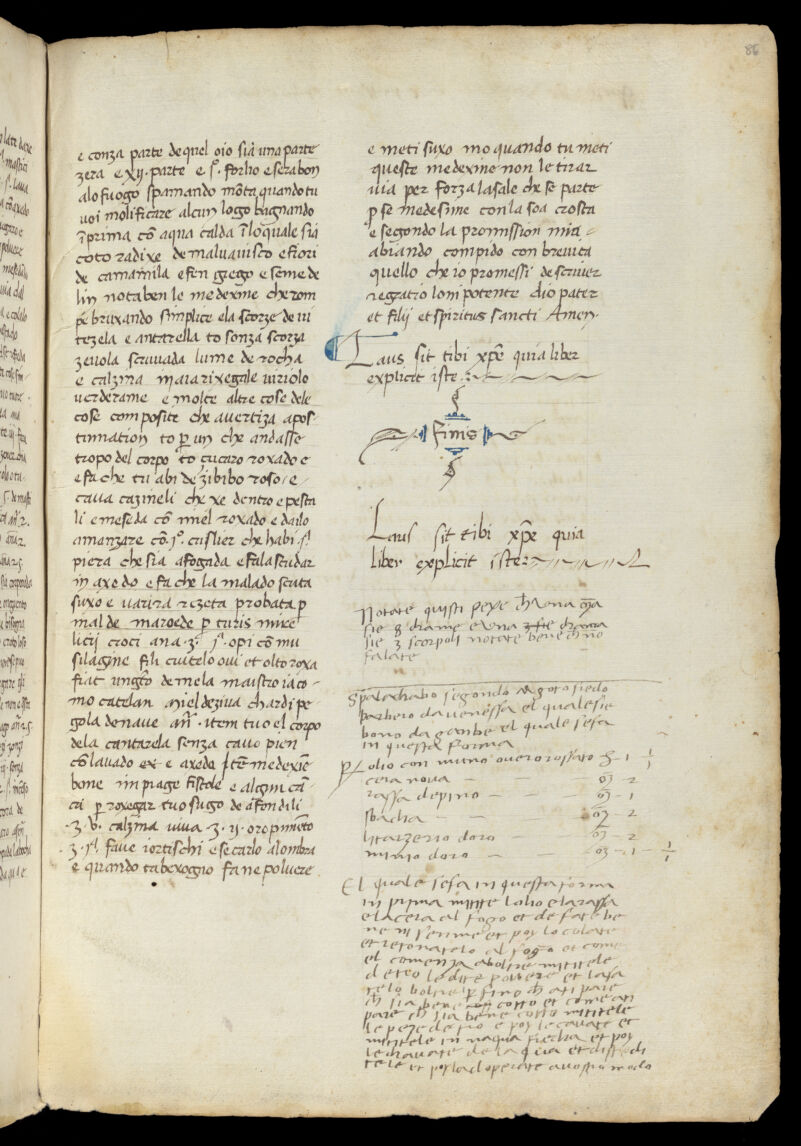 86
e conza parte de quel oio sia una parte
zera e xij. parte e s͛. forlio e sera bon
alo fuogo spamando mōta quando tu
voi molificare alcun logo bagnando
ī prima cō aqua calda ī lo quale sia
coto radixe de malvavisco e fiori
de camamila e fen grego e seme de
lin nota ben le medexine che rom
pe bruxando simplice ela scorze de vi
tezela e antarella to sonza scorza
zevola scruvada lume de rocha
e calzina maiarixegale viriolo
verderame e molte altre cose dele
cose composite che avertiza apos
timation to p un che andasse
tropo del corpo to cucaro roxado e
e fa che tu abi de zibibo roso e
cava cazineli che xe dentro e pesta
li e meseda cō miel roxado e dailo
amanzare cō .jᵃ. cuslier che habi .jᵃ
piera che sia afogada e fala scudar
in axedo e fa che la malado scuta
suxo e varira rezeta probata p
mal de maroede p turis mixe
licij croci ana .ʒ. jᵃ. opi co mu
silagine fili cuitelo ovi et olto roxa
fiat ungto de mela maistro iaco
mo catelan miel deziva chardi pe
gola de nave añ. item tuo el corpo
dela cantarela senza cavo pien
cō lavado ex e axedo Itē medexīe
bone in piage fistole e alguni cā
cri p roxegar tuo sugo de afondili
.ʒ. v. calzina viva .ʒ. ij. oropimēto
.ʒ. jᵃ. fave iortischi e secarlo alombra
e quando ta bexogno fa ne polvere
e meti suxo mo quando tu meti
queste medexine non le tirar
via per forza lasale che se parte
p se medesime con la soa crosta
e segondo la promission mia
abiando compido con brevita
quello che io promessi de scriver
regratio lonipotente dio pater
et filij et spiritus sancti Amen.
Laus sit tibi xp̄e quia liber
explicit iste
Finis
Laus sit tibi xp̄e quia
liber explicit iste
Notate quisti pexe ch una
sie 8 drame e una drama
sie 3 scorpoli notate bene ch no
falate
Spalachabo segondo
barbero da venessa el quale sie
bono da gambe el quale se fa
in questa forma
olio con muno overo rossato ℥ - 1
cera nova — ℥ - 2
rassa de pino — ℥ - 1
sbacha — ℥ - 2
litarzerio doro — ℥ - 2
minio doro — ℥ - 1
El quale se fa in questa forma
in prima mitite lolio e la rassa
e la cera al fogo et de fate be
ne insemme et poy lo colate
et retornatelo al fogo et come
el comenza a bolire mititele
dreo le dite polvere et lasa
telo bolire p fino ch a ti pare
ch sia bene cotto et come a ti
pare ch sia bene cotto mititele
le peze de tio e poy le cavate et
mititele in naqua frecha et poy
le chavate de laqua et distendi
tele et poy ladoperate a vostro modo